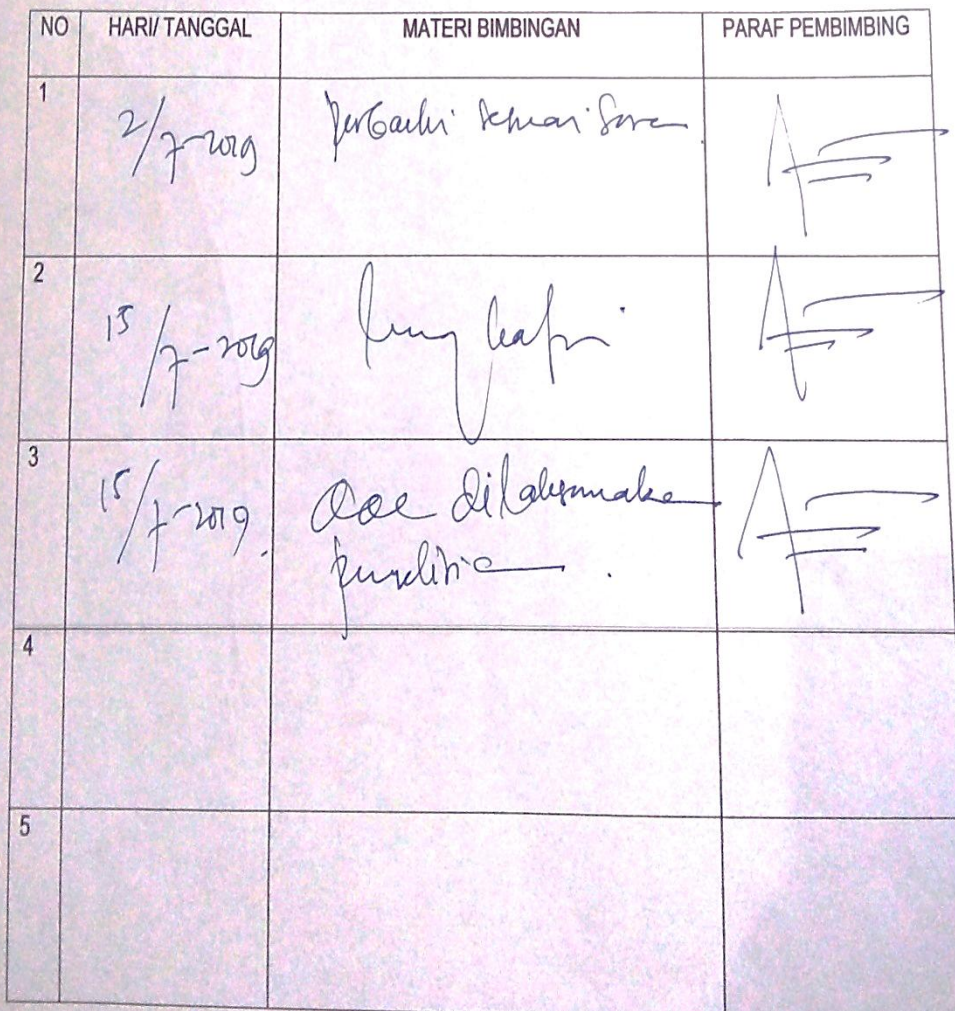 NO HARI/ TANGGAL MATERI BIMBINGAN PARAF PEMBIMBING
1 2/7-2019 perbaiki sesuai saran
2 15/7-2019 lengkapi
3 15/7-2019. acc dilaksanaka
penelitia.
4
5